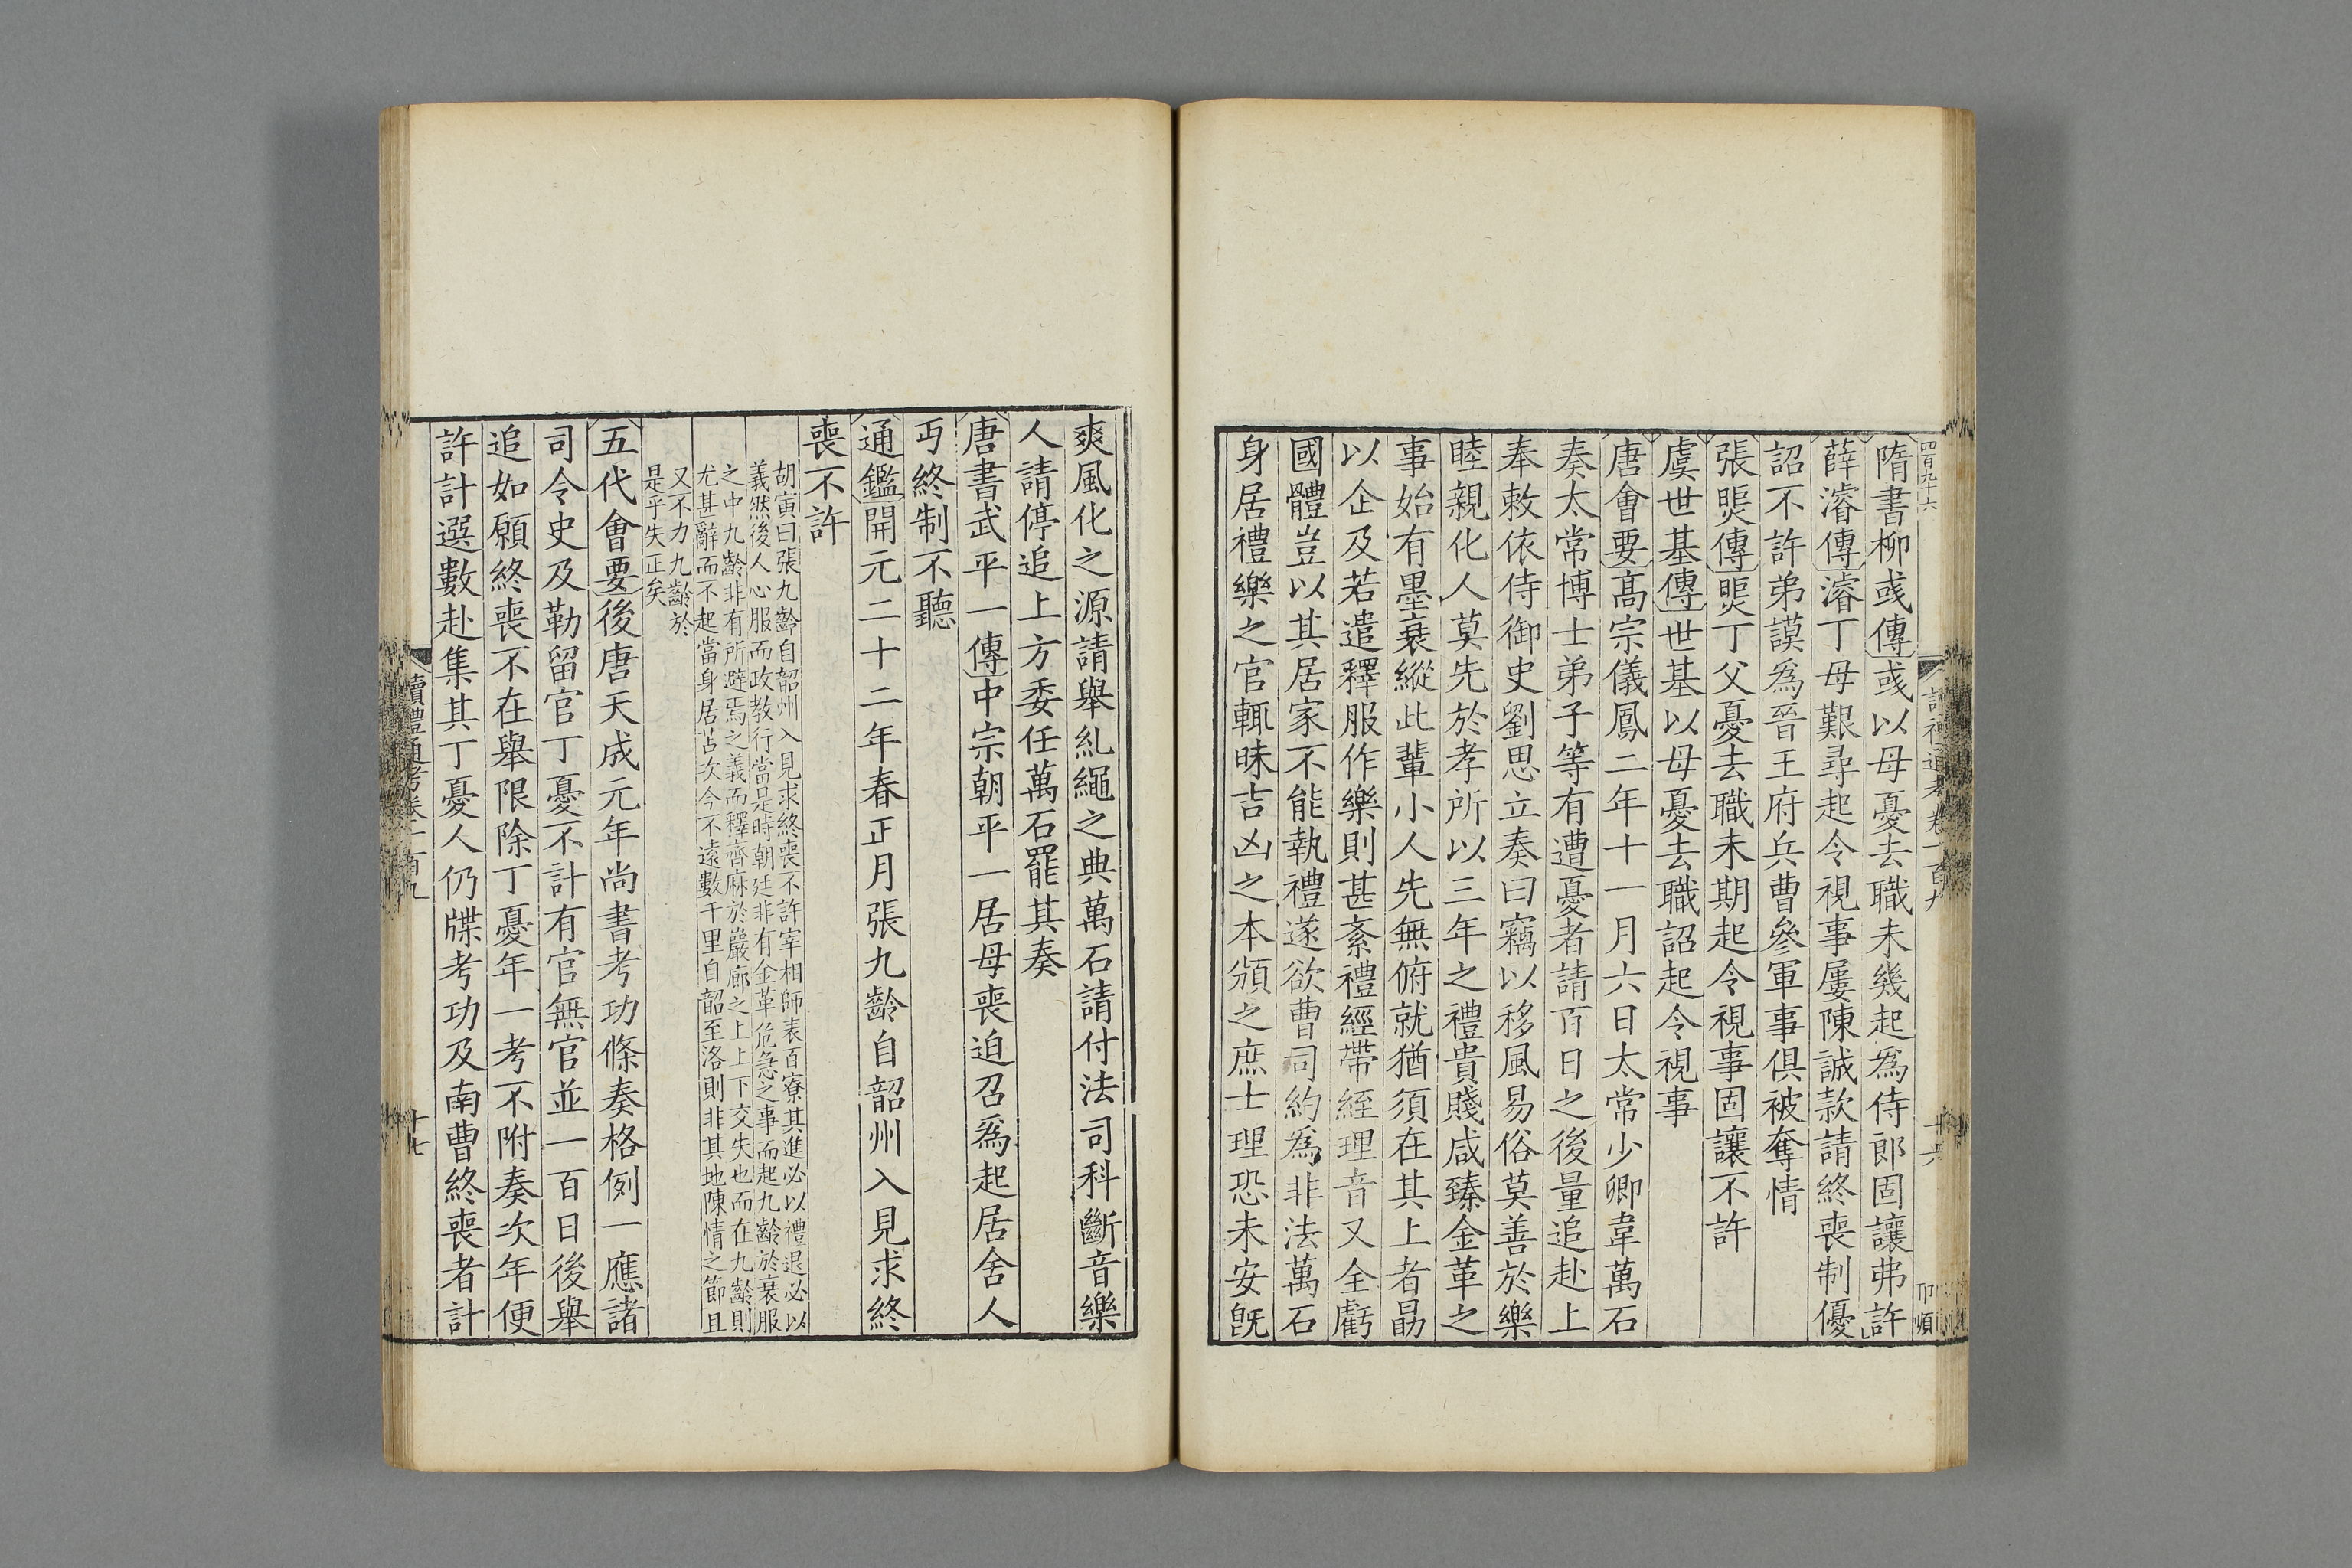 四百九十六
隋書柳彧傳彧以母憂去職未幾起為侍郎固讓弗許
薛濬傳濬丁母艱尋起令視事屢陳誠款請終喪制優
詔不許弟謨為晉王府兵曹參軍事俱被奪情
張煚傳煚丁父憂去職未期起令視事固讓不許
虞世基傳世基以母憂去職詔起令視事
唐會要高宗儀鳳二年十一月六日太常少卿韋萬石
奏太常博士弟子等有遭憂者請百日之後量追赴上
奉敕依侍御史劉思立奏曰竊以移風易俗莫善於樂
睦親化人莫先於孝所以三年之禮貴賤咸臻金革之
事始有墨衰縱此輩小人先無俯就猶須在其上者勗
以企及若遣釋服作樂則甚紊禮經帶絰理音又全虧
國體豈以其居家不能執禮遂欲曹司約為非法萬石
身居禮樂之官輒昧吉凶之本頒之庶士理恐未安旣
爽風化之源請舉糺繩之典萬石請付法司科斷音樂
人請停追上方委任萬石罷其奏
唐書武平一傳中宗朝平一居母喪迫召為起居舍人
丐終制不聽
通鑑開元二十二年春正月張九齡自韶州入見求終
喪不許
胡寅曰張九齡自韶州入見求終喪不許宰相師表百寮其進必以禮退必以
義然後人心服而政教行當是時朝廷非有金革危急之事而起九齡於衰服
之中九齡非有所避焉之義而釋齊麻於巖廊之上上下交失也而在九齡則
尤甚辭而不起當身居苫次今不遠數千里自韶至洛則非其地陳情之節且
又不力九齡於
是乎失正矣
五代會要後唐天成元年尚書考功條奏格例一應諸
司令史及勒留官丁憂不計有官無官並一百日後舉
追如願終喪不在舉限除丁憂年一考不附奏次年便
許計選數赴集其丁憂人仍牒考功及南曹終喪者計
讀禮通考卷一百九
十七